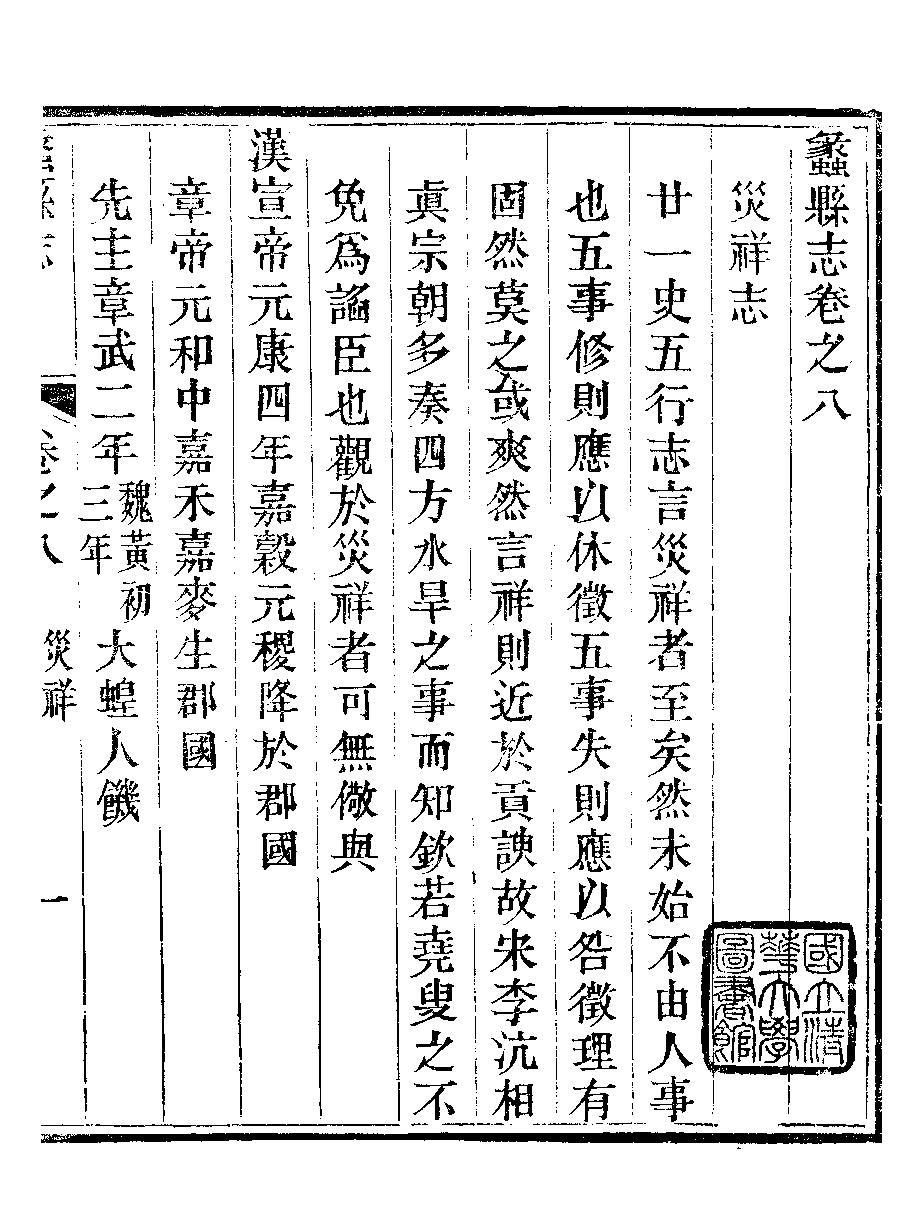 蠡縣志卷之八
災祥志
廿一史五行志言災祥者至矣然未始不由人事
也五事修則應以休徵五事失則應以咎徵理有
固然莫之或爽然言祥則近於貢諛故宋李沆相
真宗朝多奏四方水旱之事而知欽若堯叟之不
免為謟臣也觀於災祥者可無儆與
漢宣帝元康四年嘉穀元稷降於郡國
章帝元和中嘉禾嘉麥生郡國
先主章武二年魏黃初三年大蝗人饑
蠡縣志 卷之八 災祥 一
國立清華大學圖書館